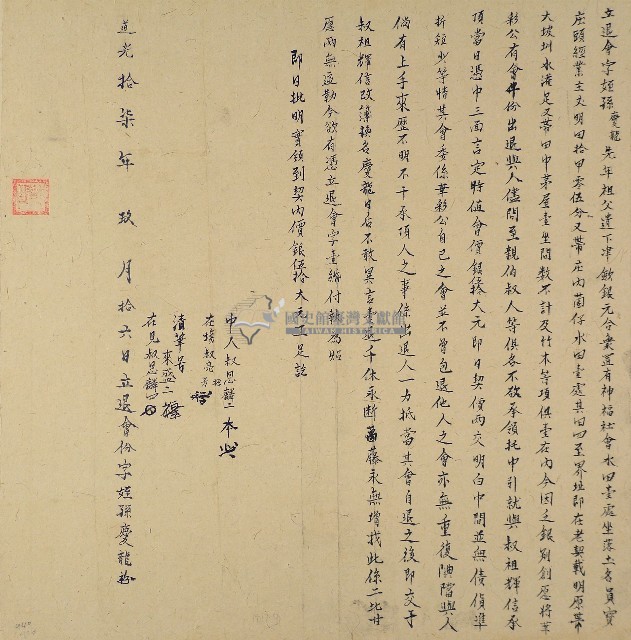 立退會字姪孫慶龍先年祖父遺下津飲銀元合衆置有神福社會水田壹處坐落土名員寶
庄頭經業主丈明田拾甲零伍分又帶庄內菌仔水田壹處其田四至界址即在老契載明原帶
大坡圳水淹足又帶田中茅屋壹坐間數不計及竹木等項俱壹在內今因乏銀別創愿將華
彩公有會半份出退與人儘問至親伯叔人等俱各不欲承領托中引就與叔祖輝信承
頂當日憑中三面言定時值會價銀伍拾大元即日契價兩交明白中間並無債偵準
折短少等情其會委係華彩公自己之會並不曾包退他人之會亦無重復典當與人
倘有上手來歷不明不干承頂人之事係出退人一力抵當其會自退之後即交于
叔祖輝信改簿換名慶龍日后不敢異言壹退千休永斷葛藤永無增找此係二比甘
愿兩無逼勒今欲有憑立退會字壹紙付執為照
即日批明實領到契內價銀伍拾大元正足說
中人叔思麟
在塲叔亮
清筆男來盛
在見叔思麟
道光拾柒年玖月拾六日立退會份字姪孫慶龍
國史館臺灣文獻館
TAIWAN HISTORICA